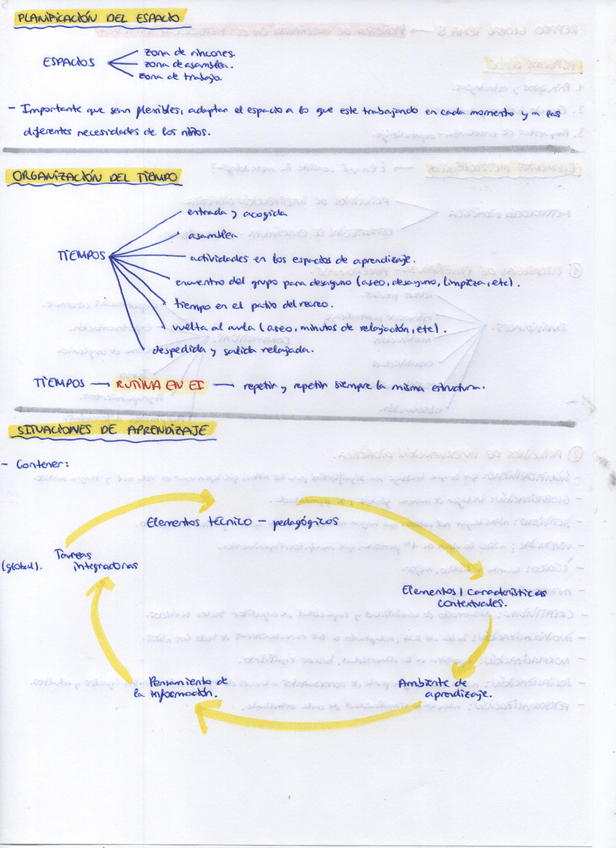 PLANIFICACIÓN DEL ESPACIO
ESPACIOS
zona de rincones.
zona de asamblea.
zona de trabajo.
- Importante que sean flexibles, adaptar el espacio a lo que este trabajando en cada momento y a las
diferentes necesidades de los niños.
ORGANIZACIÓN DEL TIEMPO
TIEMPOS
entrada y acogida
asamblea
actividades en los espacios de aprendizaje.
encuentro del grupo para desayuno (aseo, desayuno, limpieza, etc).
tiempo en el patio del recreo.
vuelta al aula (aseo, minutos de relajación, etc).
despedida y salida relajada.
TIEMPOS → RUTINA EN EI → repetir y repetir siempre la misma estructura.
SITUACIONES DE APRENDIZAJE
- Contener:
Elementos técnico - pedagógicos
Elementos / Características
contextuales.
Ambiente de
aprendizaje.
Pensamiento de
la información.
Tareas
(global). integradoras